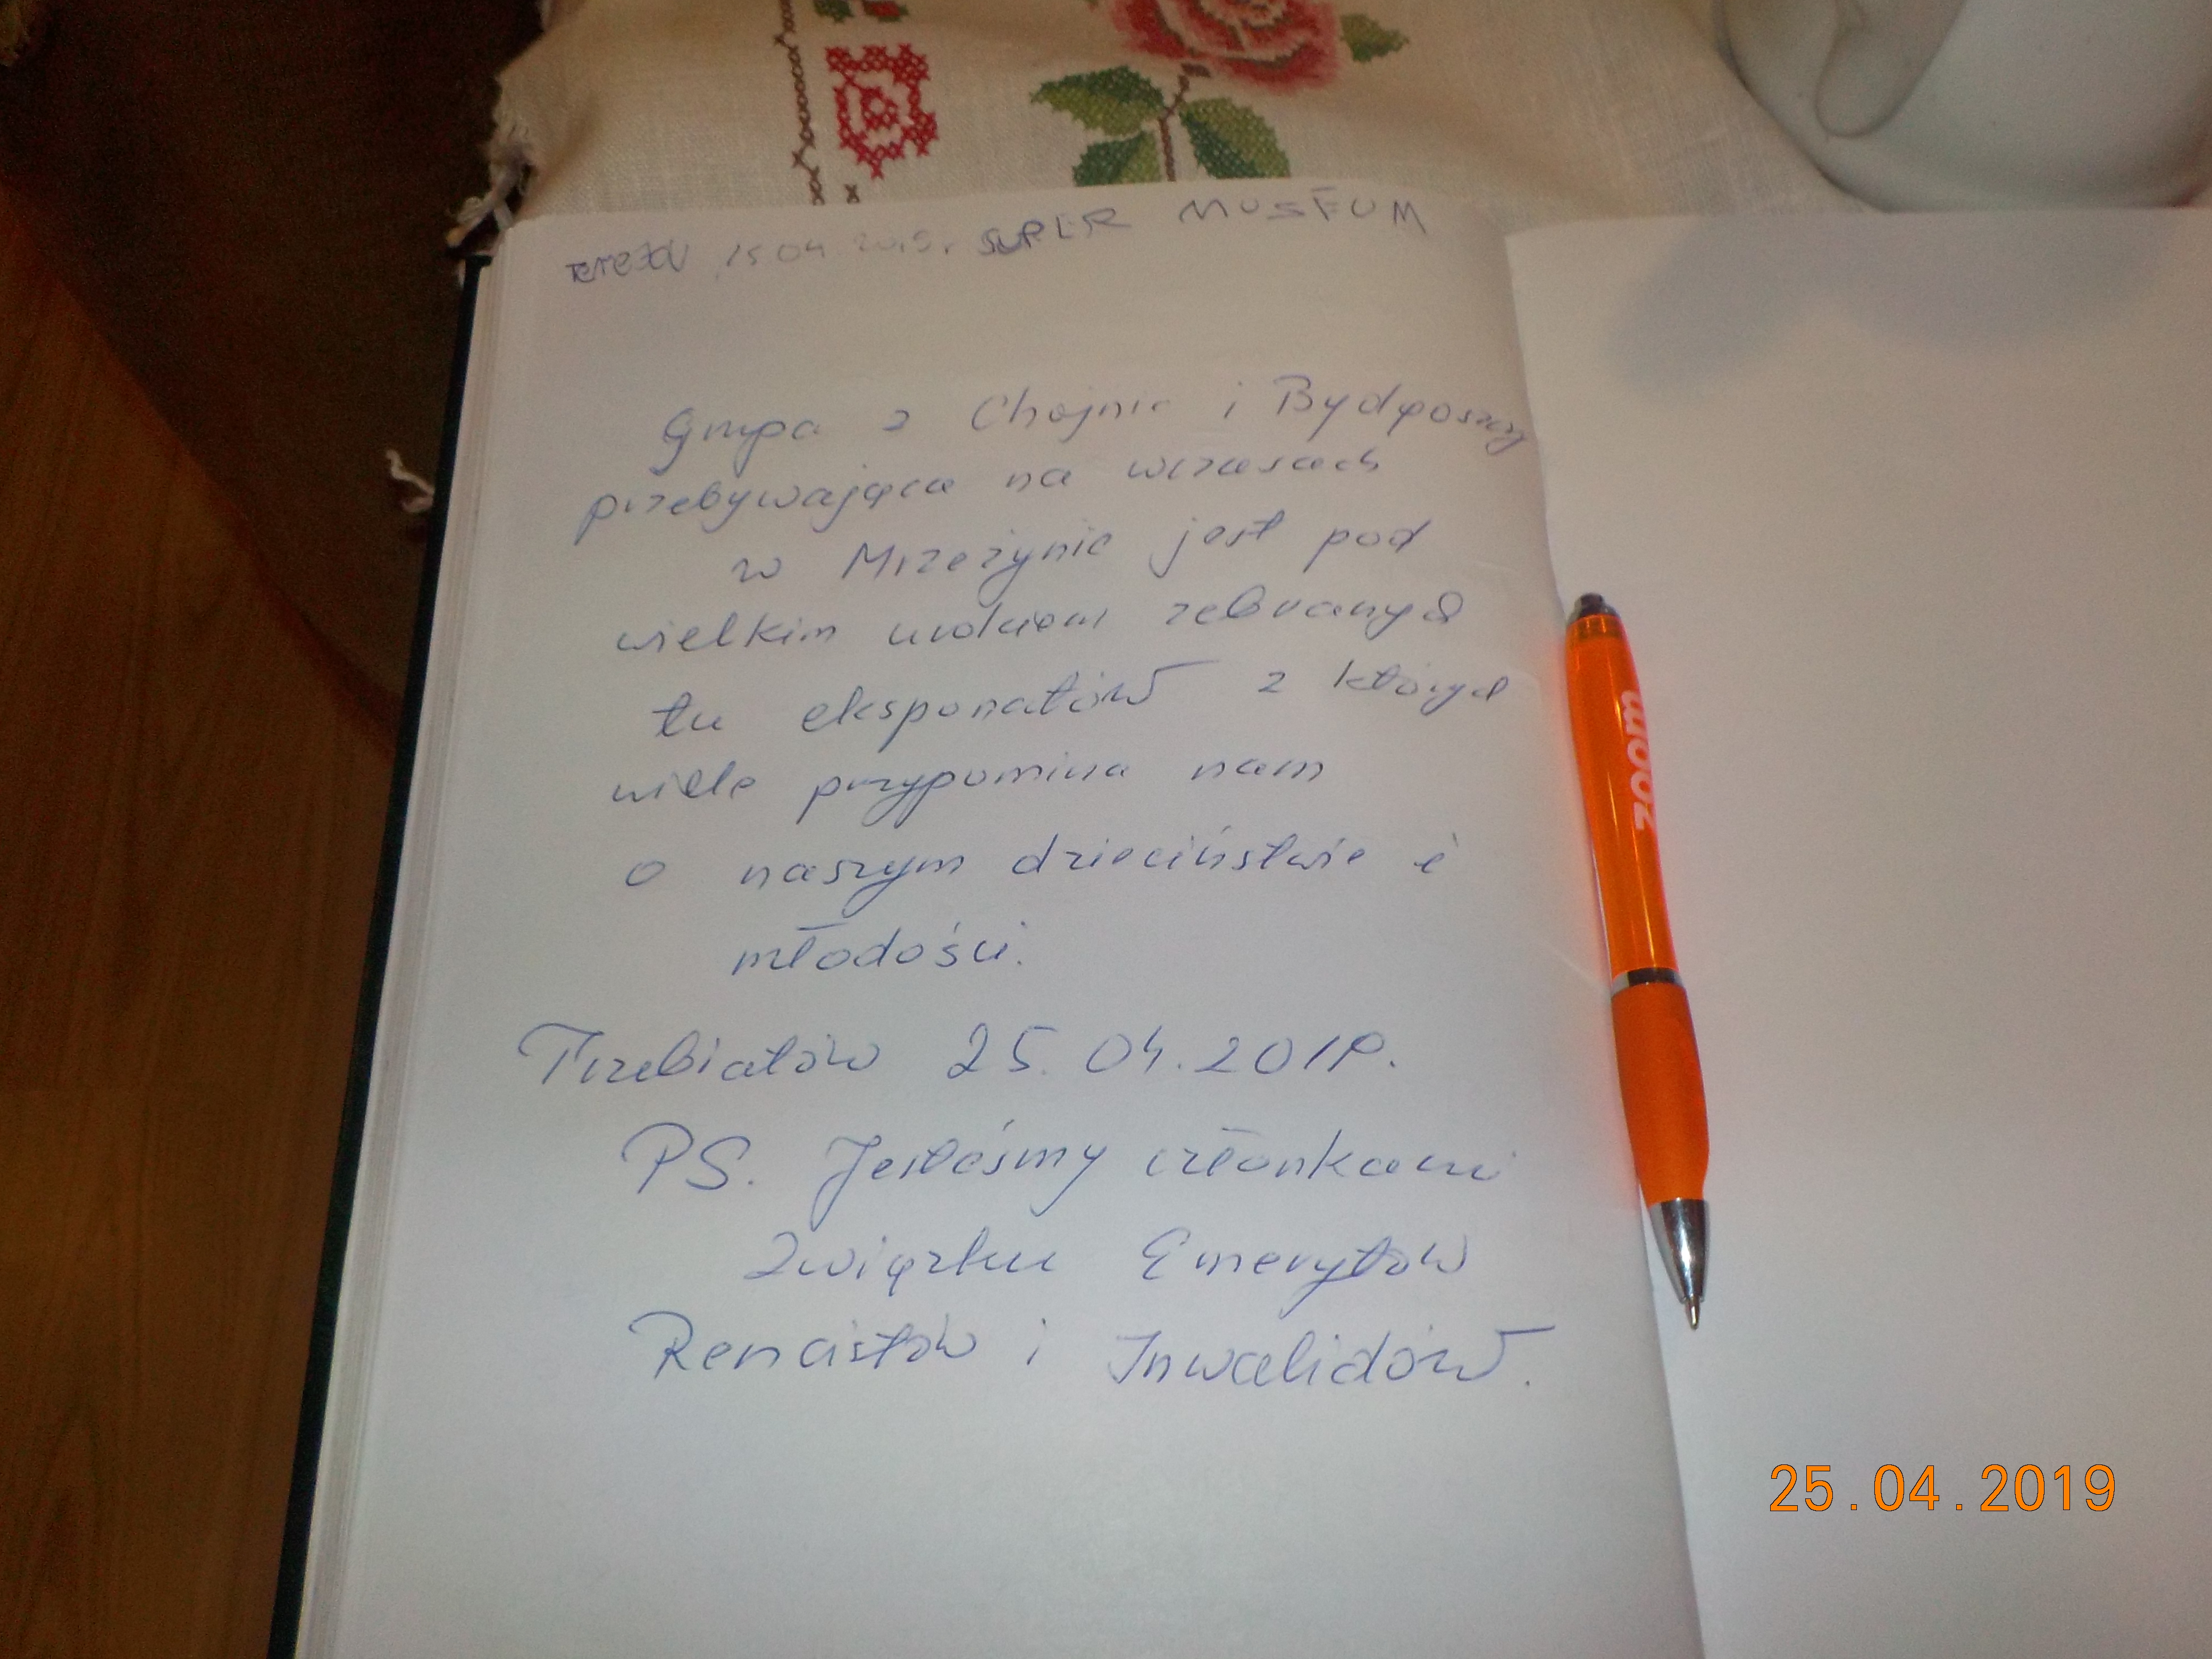 15 04 2019. SUPER MUSEUM
Grupa z Chojnic i Bydgoszczy
przebywająca na wczasach
w Mrzeżynie jest pod
wielkim urokiem zebranych
tu eksponatów z których
wiele przypomina nam
o naszym dzieciństwie i
młodości.
Trzebiatów 25.04.2019.
PS. Jesteśmy członkami
Związku Emerytów
Rencistów i Inwalidów.
zoom
25.04.2019